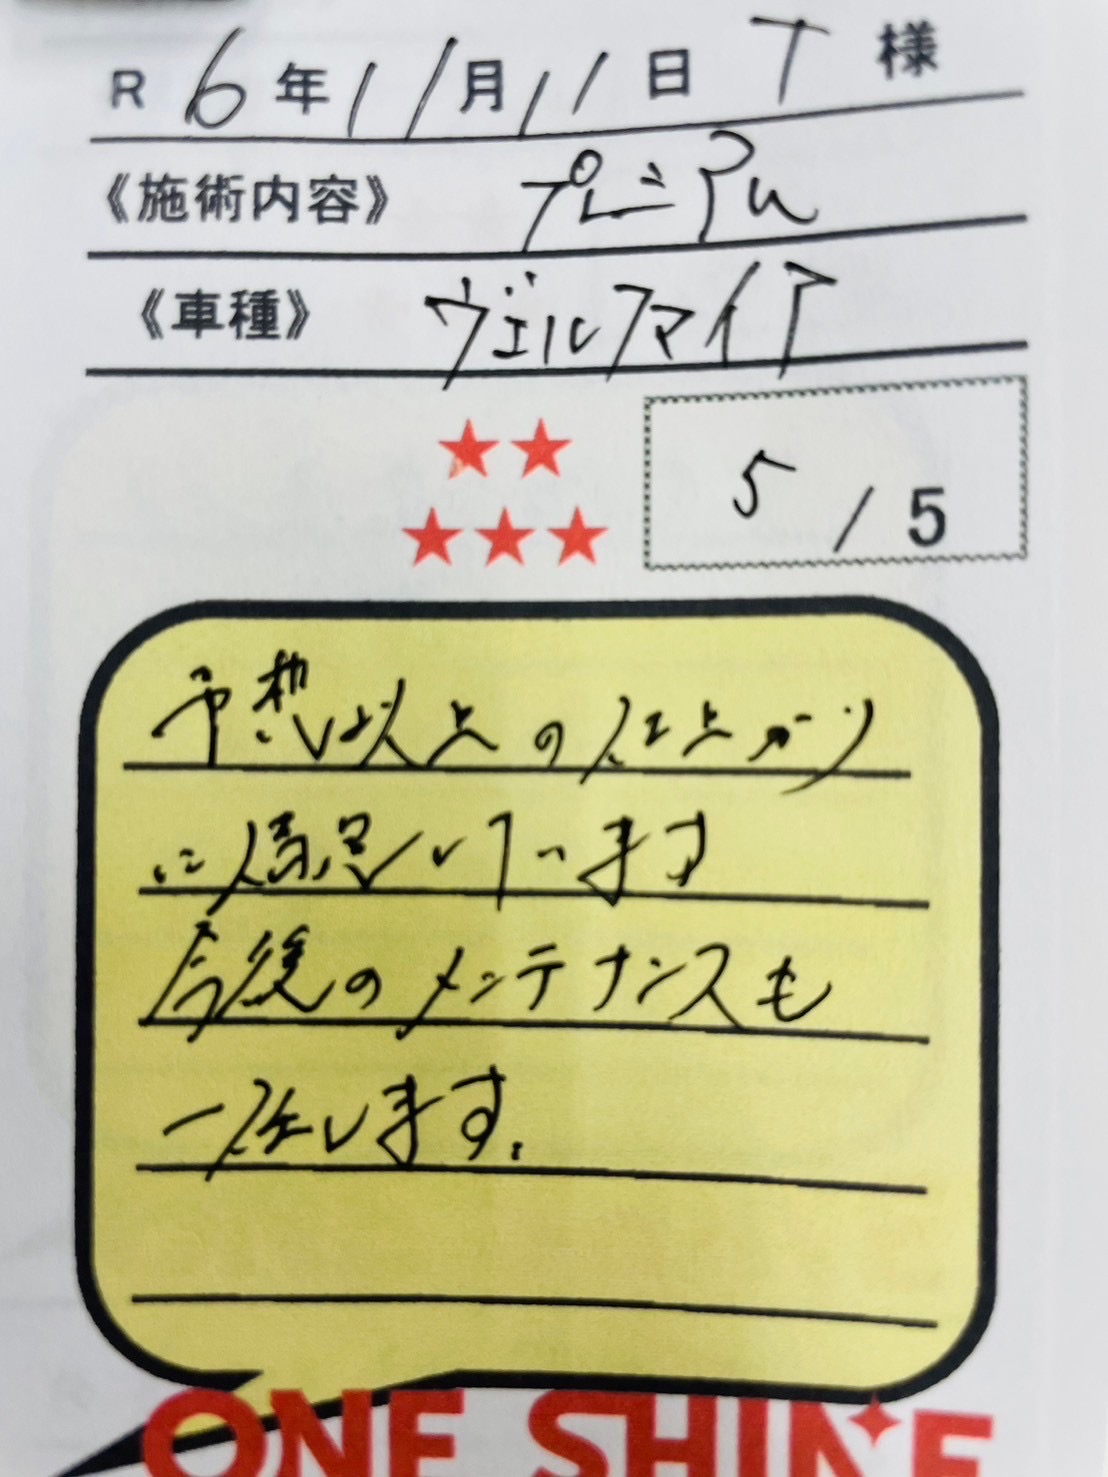 R 6年11月11日 T 様
《施術内容》 プレミアム
《車種》 ヴェルファイア
5 / 5
予想以上の仕上がり
に満足しています
今後のメンテナンスも
一任します。
ONE SHINE